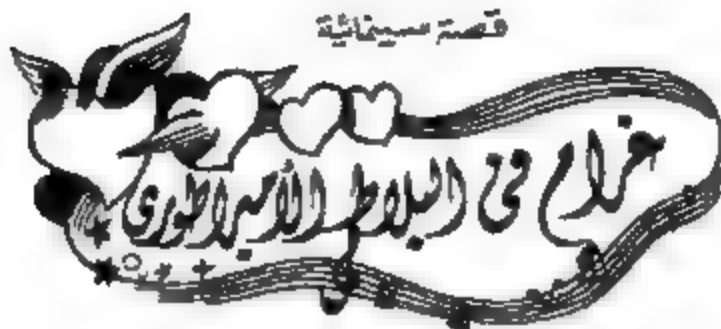 قصة سينمائية
غرام في البلاط الأمبراطوري